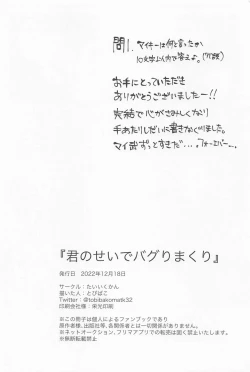 問1. マイキーは何と言ったか
10文字以内で答えよ。
お手にとっていただき
ありがとうございましたー!!
完結で心がさみしくなり
手あたりしだいに書きなぐりました。
マイ武ずっとすきだ…。フォーエバー…。
『君のせいでバグりまくり』
発行日 2022年12月18日
サークル：たいいくかん
描いた人：とびばこ
Twitter：@tobibakomatk32
印刷会社様：栄光印刷
※この冊子は個人によるファンブックであり
原作者様、出版社等、各関係者とは一切関係がありません。
※ネットオークション、フリマアプリでの転売は固く禁止いたします。
※無断転載禁止